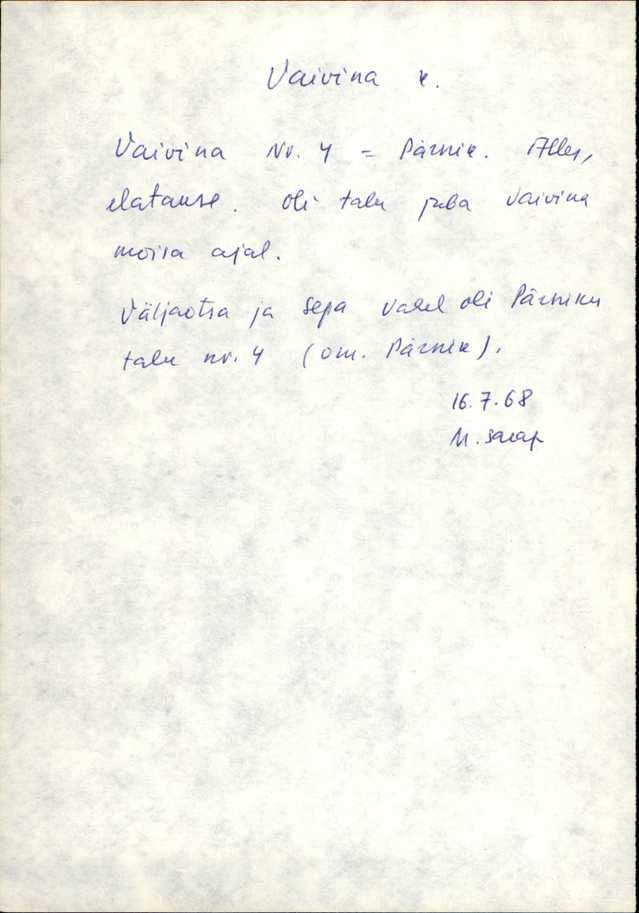 Vaivina k.
Vaivina Nr. 4 = Pärnik. Alles,
elatakse. Oli talu juba Vaivina
moisa ajal.
Väljaotsa ja Sepa vahel oli Pärniku
talu nr. 4 (om. Pärnik).
16.7.68
M. Saap